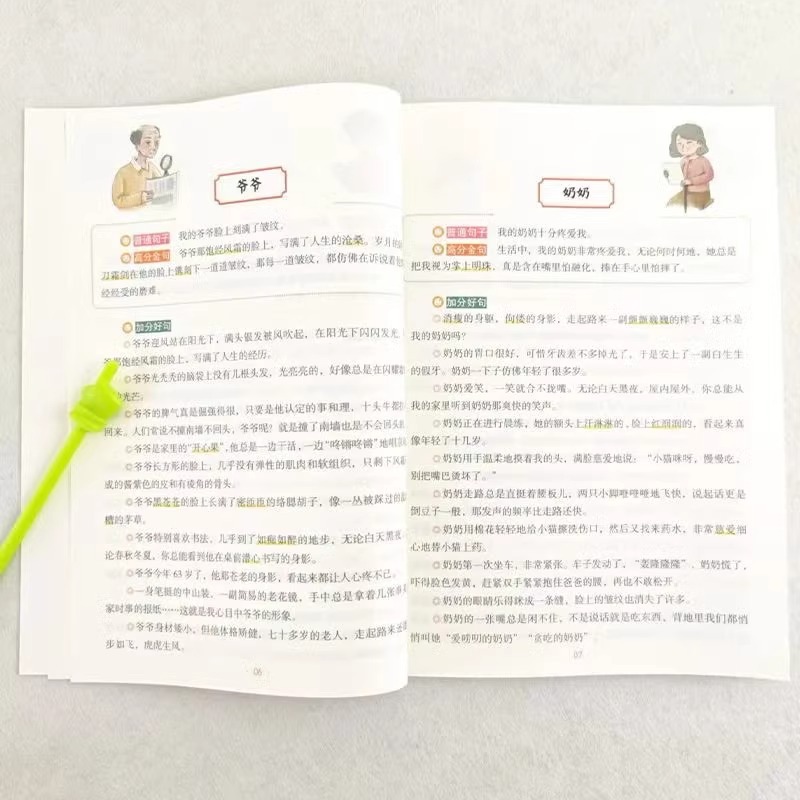 爷爷
普通句子 我的爷爷脸上刻满了皱纹。
高分金句 爷爷那饱经风霜的脸上，写满了人生的沧桑。岁月的
刀霜剑在他的脸上镌刻下一道道皱纹，那每一道皱纹，都仿佛在诉说着他
经经受的磨难。
加分好句
◎爷爷迎风站在阳光下，满头银发被风吹起，在阳光下闪闪发光
爷那饱经风霜的脸上，写满了人生的经历。
◎爷爷光秃秃的脑袋上没有几根头发，光亮亮的，好像总是在闪耀
光芒。
◎爷爷的脾气真是倔强得很，只要是他认定的事和理，十头牛都拉
回来。人们常说不撞南墙不回头，爷爷呢？就是撞了南墙也是不会回头
◎爷爷是家里的“开心果”，他总是一边干活，一边“咚锵咚锵”地唱
◎爷爷长方形的脸上，几乎没有弹性的肌肉和软组织，只剩下风
成的酱紫色的皮和有棱角的骨头。
◎爷爷黑苍苍的脸上长满了密匝匝的络腮胡子，像一丛被踩过的
糟的茅草。
◎爷爷特别喜欢书法，几乎到了如痴如醉的地步，无论白天黑夜
论春秋冬夏，你总能看到他在桌前潜心书写的身影。
◎爷爷今年63岁了，他那苍老的身影，看起来都让人心疼不已。
◎一身笔挺的中山装，一副简易的老花镜，手中总是拿着几张
家时事的报纸……这就是我心目中爷爷的形象。
◎爷爷身材矮小，但他体格矫健，七十多岁的老人，走起路来还
步如飞，虎虎生风。
06
奶奶
普通句子 我的奶奶十分疼爱我。
高分金句 生活中，我的奶奶非常疼爱我，无论何时何地，她总是
把我视为掌上明珠，真是含在嘴里怕融化，捧在手心里怕摔了。
加分好句
◎消瘦的身躯，佝偻的身影，走起路来一副颤颤巍巍的样子，这不是
我的奶奶吗？
◎奶奶的胃口很好，可惜牙齿差不多掉光了，于是安上了一副白生生
的假牙。奶奶一下子仿佛年轻了很多岁。
◎奶奶爱笑，一笑就合不拢嘴。无论白天黑夜，屋内屋外，你总能从
我的家里听到奶奶那爽快的笑声。
◎奶奶正在进行晨练，她的额头上汗淋淋的，脸上红润润的，看起来真
像年轻了十几岁。
◎奶奶用手温柔地摸着我的头，满脸慈爱地说：“小猫咪呀，慢慢吃，
别把嘴巴烫坏了。”
◎奶奶走路总是直挺着腰板儿，两只小脚噔噔噔地飞快，说起话更是
倒豆子一般，那发声的频率比走路还快。
◎奶奶用棉花轻轻地给小猫擦洗伤口，然后又找来药水，非常慈爱细
心地替小猫上药。
◎奶奶第一次坐车，非常紧张。车子发动了，“轰隆隆隆”，奶奶慌了，
吓得脸色发黄，赶紧双手紧紧抱住爸爸的腰，再也不敢松开。
◎奶奶的眼睛乐得眯成一条缝，脸上的皱纹也消失了许多。
◎奶奶的一张嘴总是闲不住，不是说话就是吃东西，背地里我们都悄
悄叫她“爱唠叨的奶奶”“贪吃的奶奶”
07